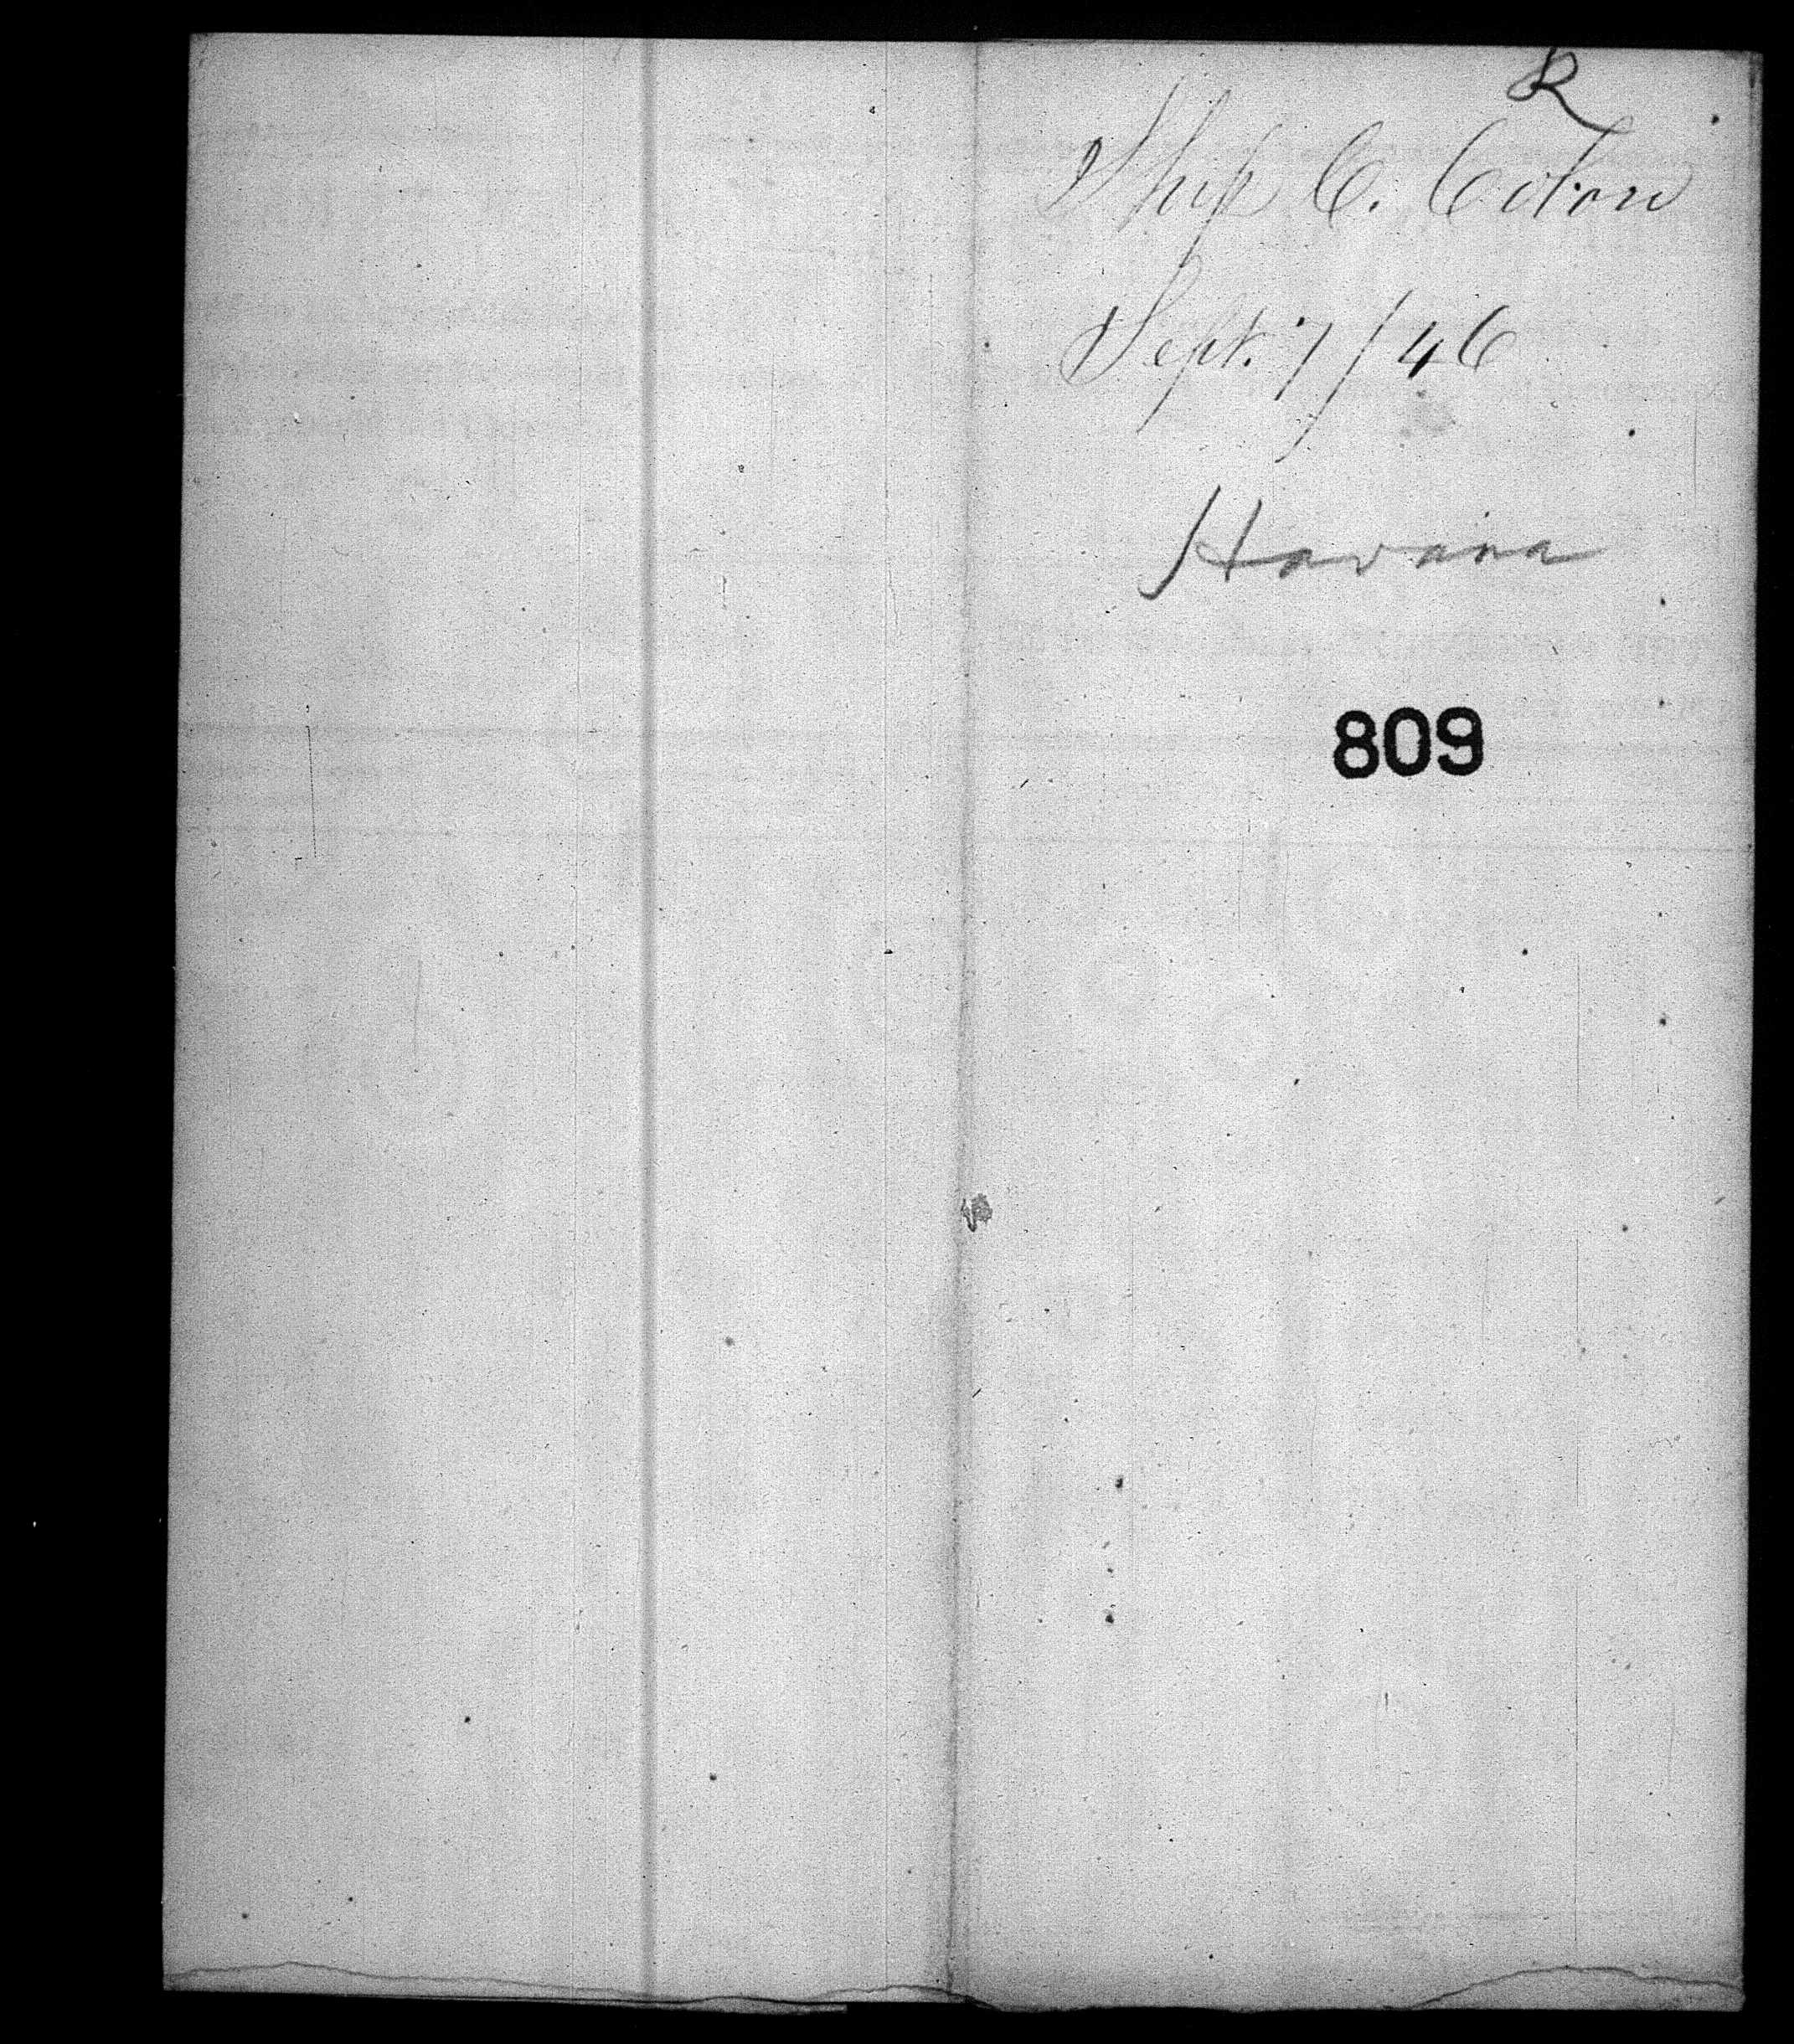 R
Ship C. Colon
Sept. 7/46
Havana
809